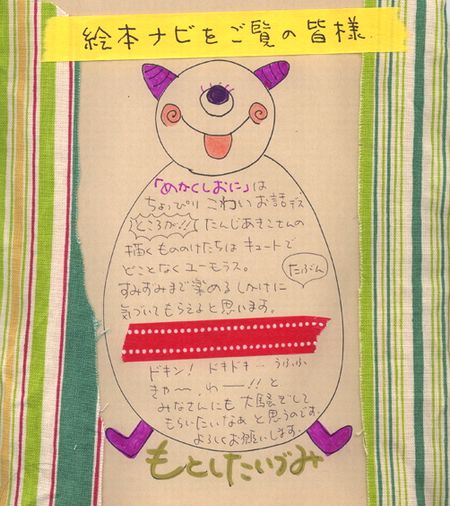 絵本ナビをご覧の皆様
「めかくしおに」は
ちょっぴり こわいお話デス
ところが!! たんじあきこさんの
描くもののけたちは キュートで
どことなくユーモラス。
たぶん
すみずみまで楽めるしかけに
気づいてもらえると思います。
ドキン! ドキドキ… うふふ
きゃ〜、わーー!! と
みなさんにも 大騒ぎして
もらいたいなぁ と思うのです。
よろしくお願いします。
もとしたいづみ